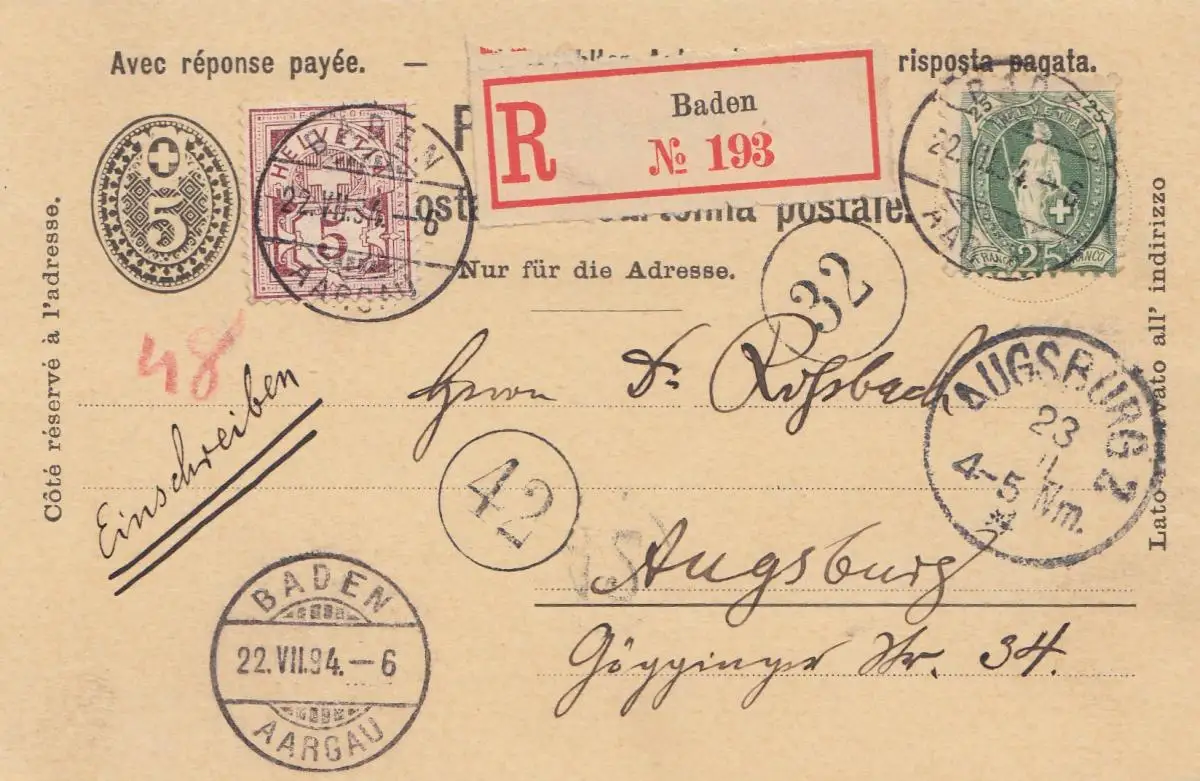 Avec réponse payée. — risposta pagata.
R
Baden
№ 193
5
HELVETIA
5
BADEN
22.VII.94.–6
AARGAU
25 25
HELVETIA
25
FRANCO FRANCO
BADEN
22.VII.94.–6
AARGAU
postale.
Nur für die Adresse.
Côté réservé à l'adresse.
Lato all' indirizzo
32
48
Einschreiben
Herrn Dr. Rohsbach
42
AUGSBURG
23
4-5 Nm.
Augsburg
Gögginger Str. 34.
BADEN
22.VII.94.–6
AARGAU